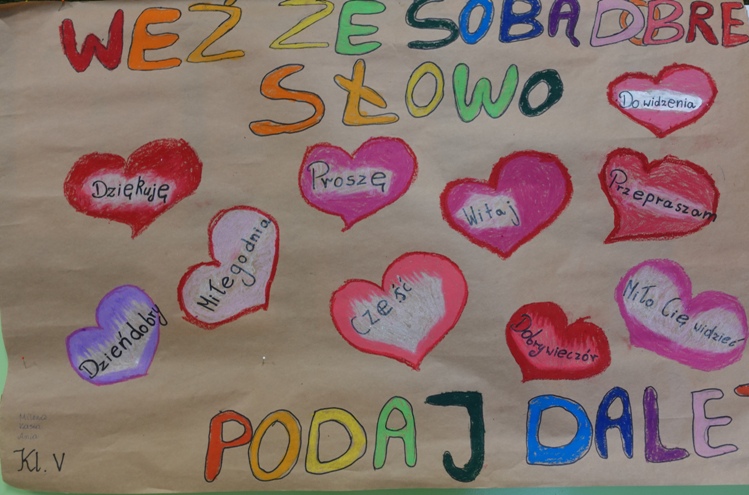 WEŹ ZE SOBĄ DOBRE
SŁOWO
Do widzenia
Dziękuję
Proszę
Witaj
Przepraszam
Miłego dnia
Cześć
Dzień dobry
Dobry wieczór
Miło Cię widzieć
PODAJ DALEJ
Kl. V